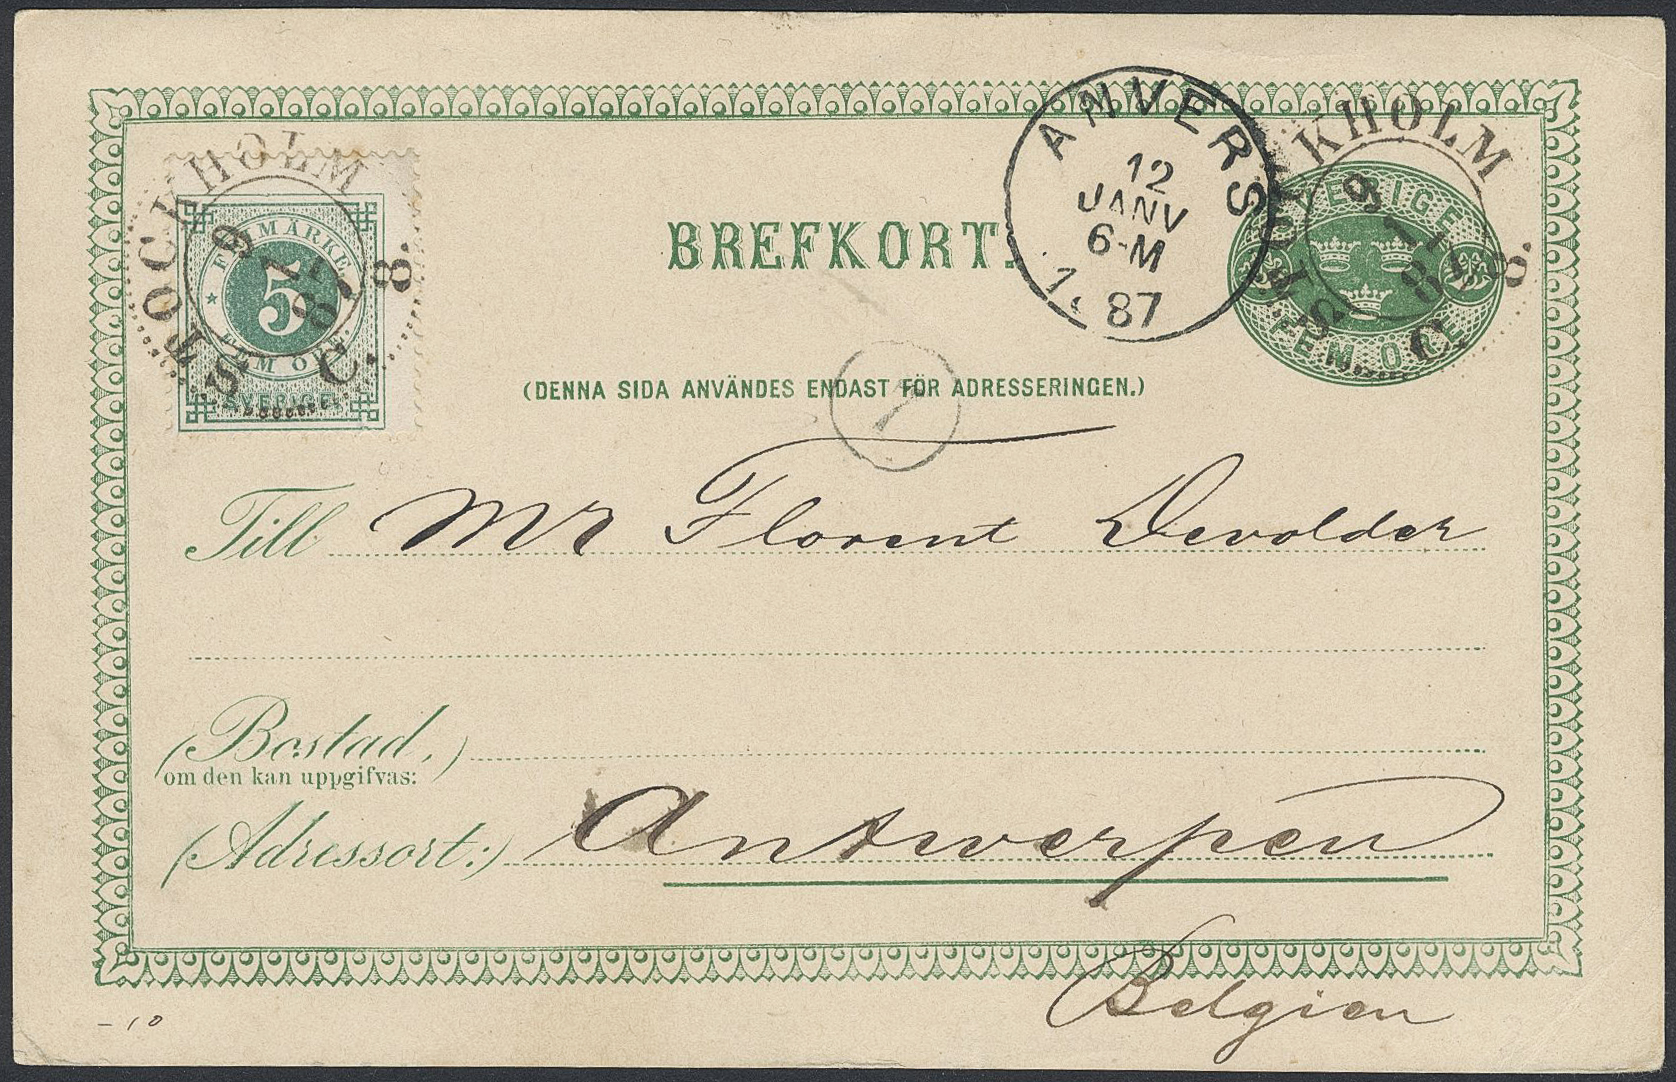 STOCKHOLM 5. C. 8.
9
1
87
FRIMÄRKE
5
FEM ÖRE
SVERIGE
ANVERS
12
JANV
6-M
1. 87
STOCKHOLM 5. C. 8.
9
1
87
SVERIGE
FEM ÖRE
BREFKORT.
(DENNA SIDA ANVÄNDES ENDAST FÖR ADRESSERINGEN.)
7
Till Mr Florent Devolder
(Bostad,)
om den kan uppgifvas:
(Adressort:) Antwerpen
Belgien
- 10